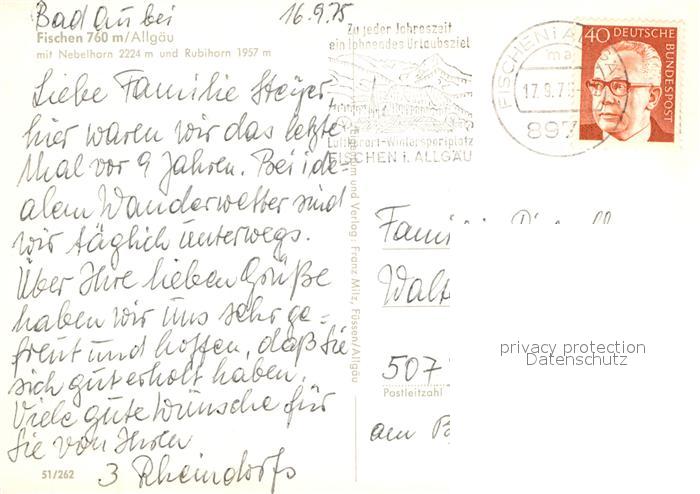 Bad Au bei 16.9.75
Fischen 760 m/Allgäu
mit Nebelhorn 2224 m und Rubihorn 1957 m
Liebe Familie Steyer,
hier waren wir das letzte
Mal vor 9 Jahren. Bei ide-
alem Wanderwetter sind
wir täglich unterwegs.
Über Ihre lieben Grüße
haben wir uns sehr ge=
freut und hoffen, daß Sie
sich gut erholt haben.
Viele gute Wünsche für
Sie von Ihren
3 Rheindorfs
51/262
Verlag: Franz Milz, Füssen/Allgäu
Zu jeder Jahreszeit
ein lohnendes Urlaubsziel
Luftkurort-Wintersportplatz
FISCHEN i. ALLGÄU
FISCHEN i ALLGÄU
ma
17.9.75
897
40 DEUTSCHE
BUNDESPOST
Fami
Walt
507
Postleitzahl
am
privacy protection
Datenschutz